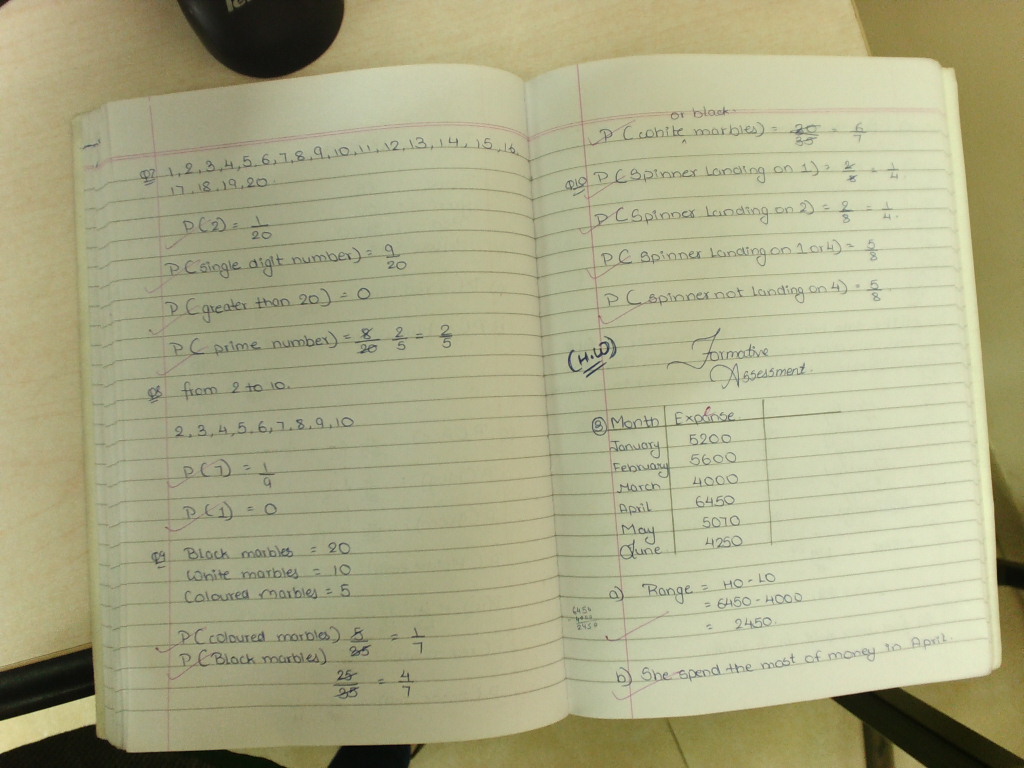 Q7 1, 2, 3, 4, 5, 6, 7, 8, 9, 10, 11, 12, 13, 14, 15, 16,
17, 18, 19, 20.
P(2) = 1/20
P(single digit number) = 9/20
P(greater than 20) = 0
P(prime number) = 8/20 2/5 = 2/5
Q8 from 2 to 10.
2, 3, 4, 5, 6, 7, 8, 9, 10
P(7) = 1/9
P(1) = 0
Q9 Black marbles = 20
White marbles = 10
Coloured marbles = 5
P(coloured marbles) 5/35 = 1/7
P(Black marbles)
/35 = 4/7
or black.
P(white marbles) = 30/35 = 6/7
Q10 P(Spinner landing on 1) = 2/8 = 1/4.
P(Spinner landing on 2) = 2/8 = 1/4.
P(Spinner landing on 1 or 4) = 5/8
P(spinner not landing on 4) = 5/8.
(H.W)
Formative
Assessment.
3 Month Expense
January 5200
February 5600
March 4000
April 6450
May 5070
June 4250
a) Range = HO - LO
= 6450 - 4000
= 2450.
6450
- 4000
2450
b) She spend the most of money in April.